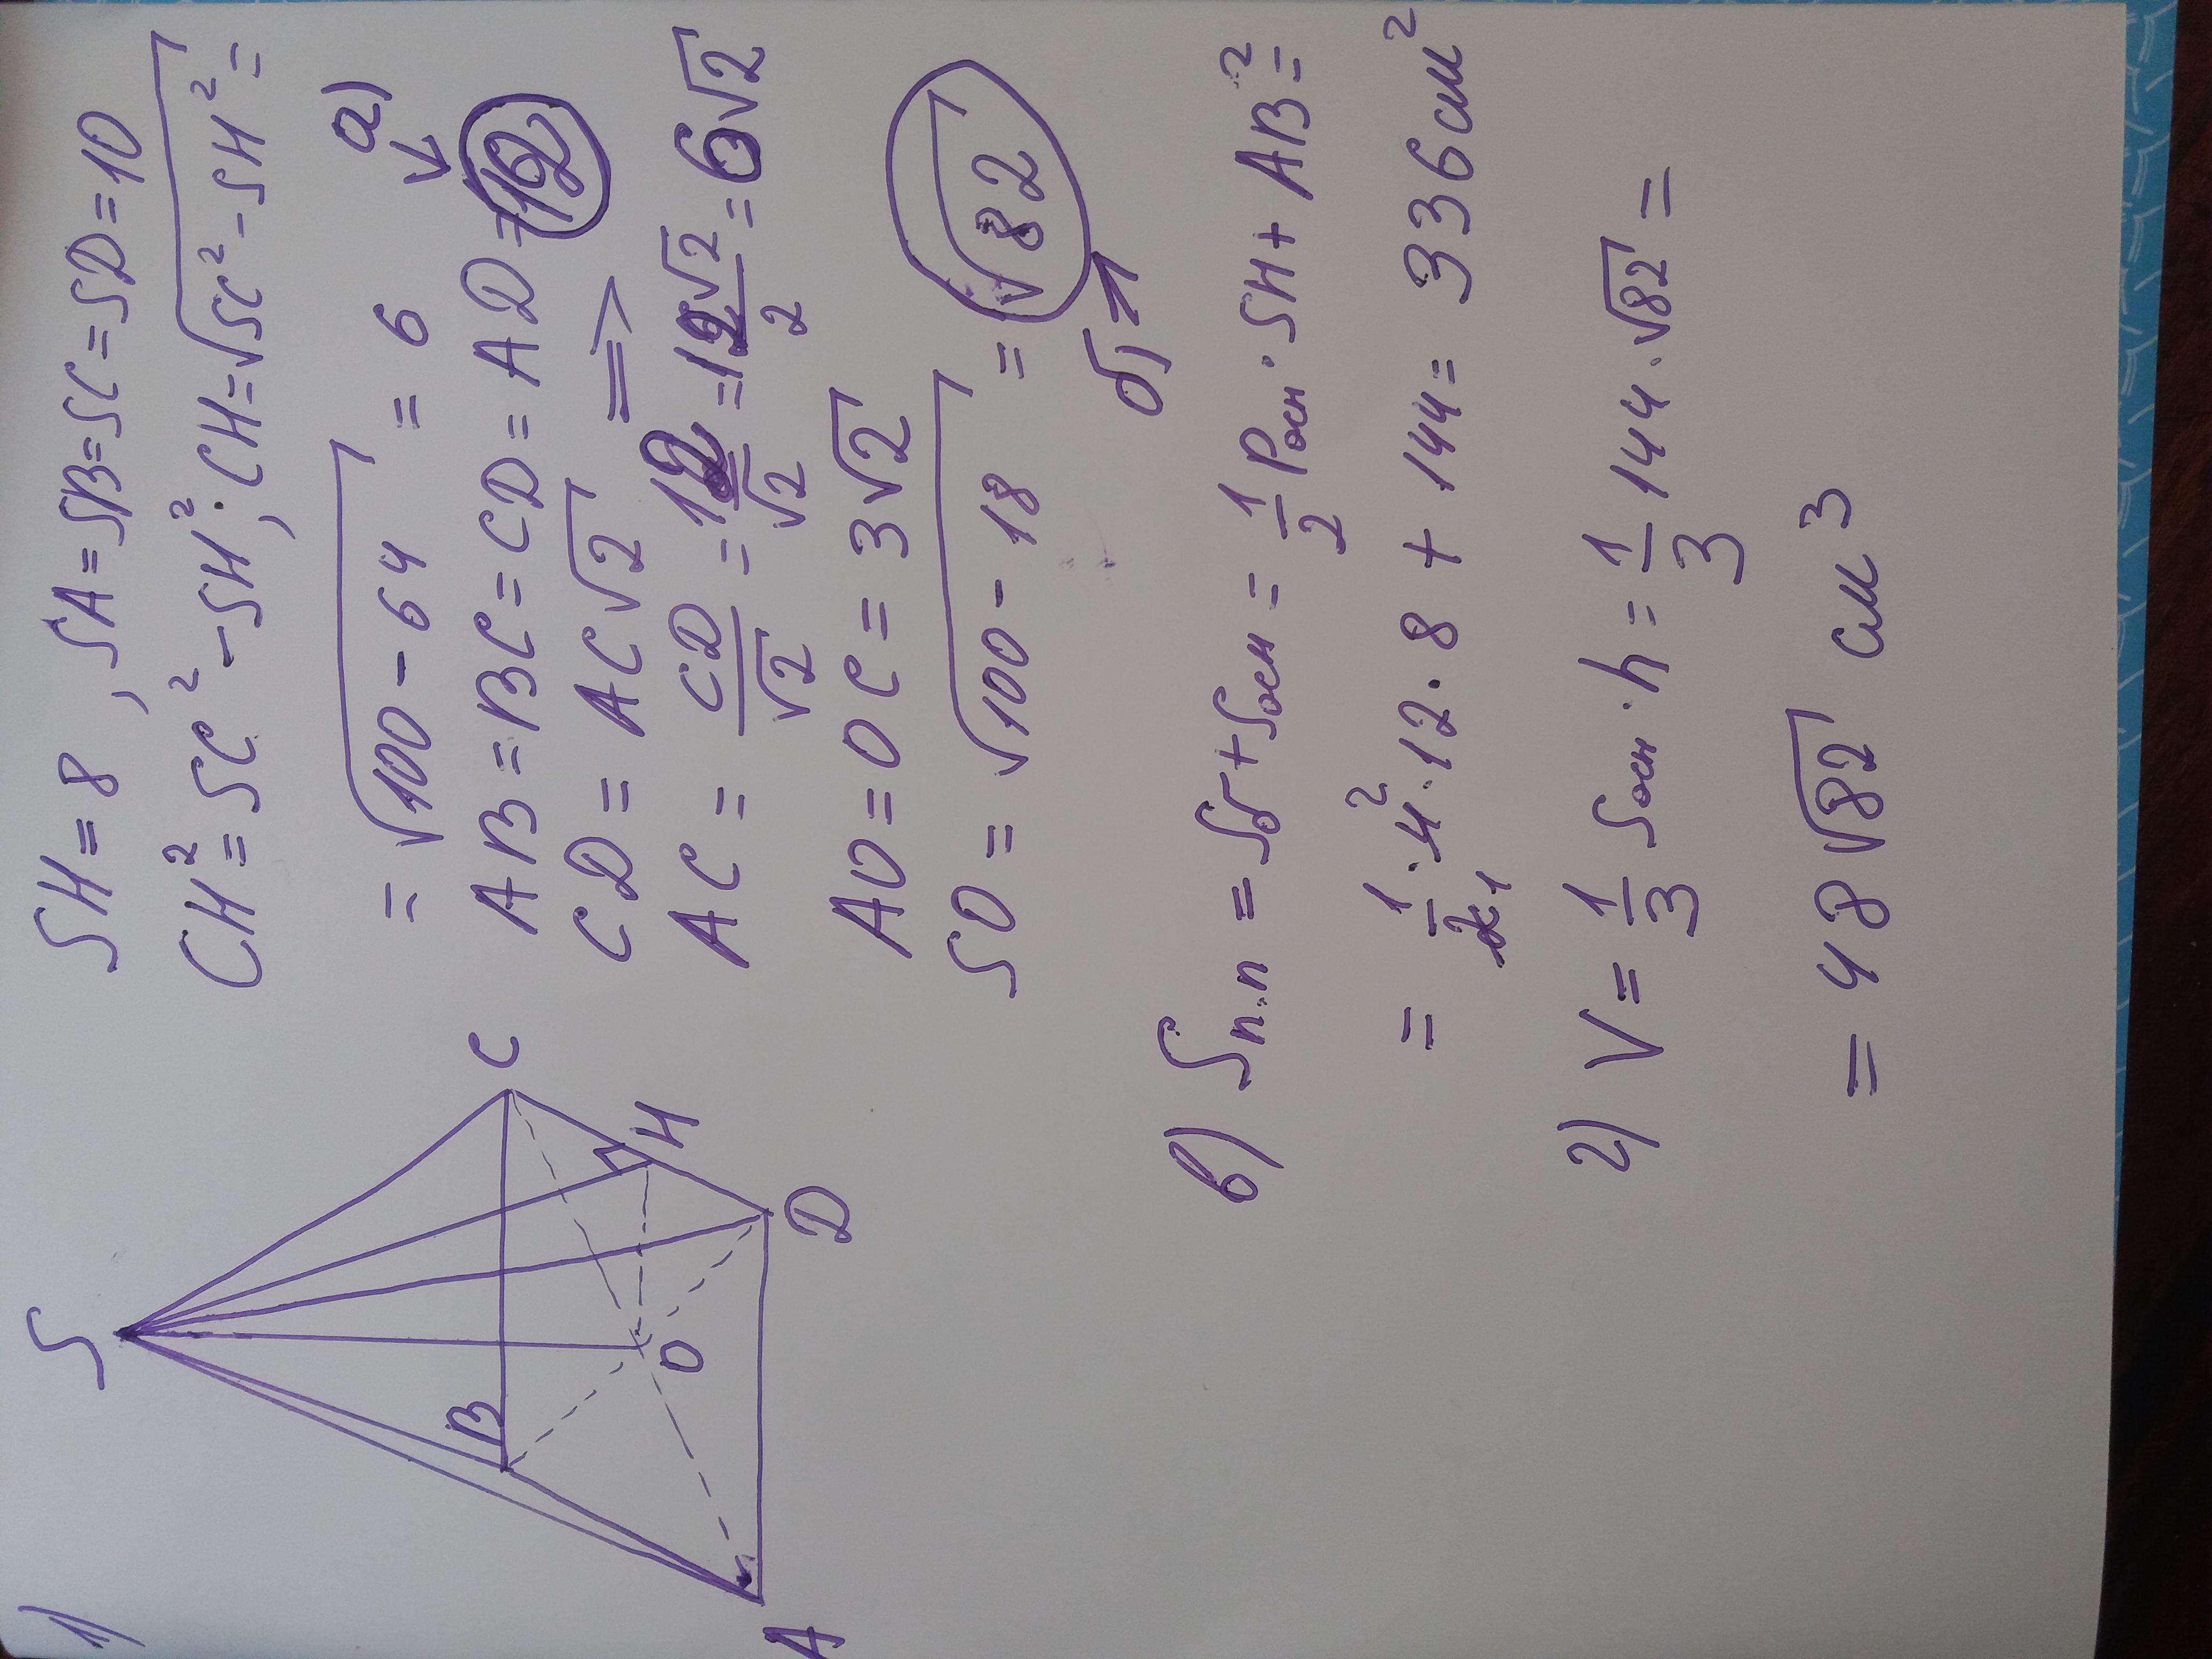 1)
S
B
C
H
O
A
D
SH = 8, SA = SB = SC = SD = 10
CH² = SC² - SH²; CH = √SC² - SH² =
= √100 - 64 = 6
а)
AB = BC = CD = AD = 12
CD = AC√2 =>
AC = CD/√2 = 12/√2 = 12√2/2 = 6√2
AO = OC = 3√2
SO = √100 - 18 = √82
б)
в) Sп.п = Sб + Sосн = 1/2 Pосн · SH + AB² =
= 1/2 1 · 4 2 · 12 · 8 + 144 = 336 см²
г) V = 1/3 Sосн · h = 1/3 144 · √82 =
= 48√82 см³